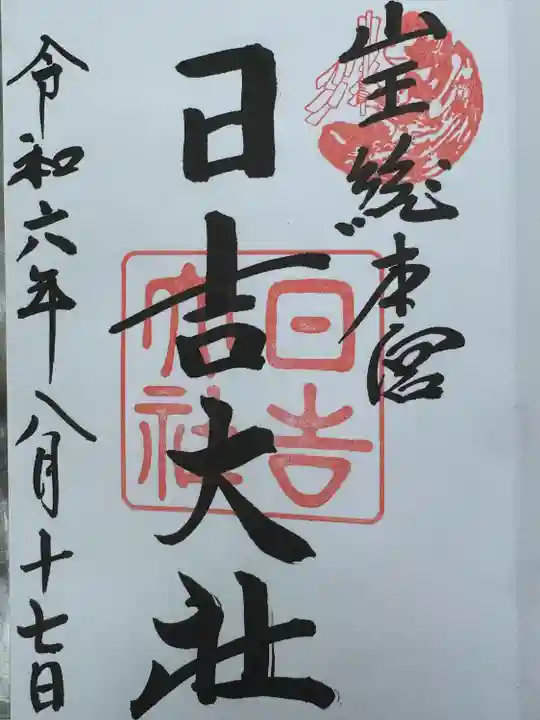 山王総本宮
日吉大社
日吉
大社
令和六年八月十七日